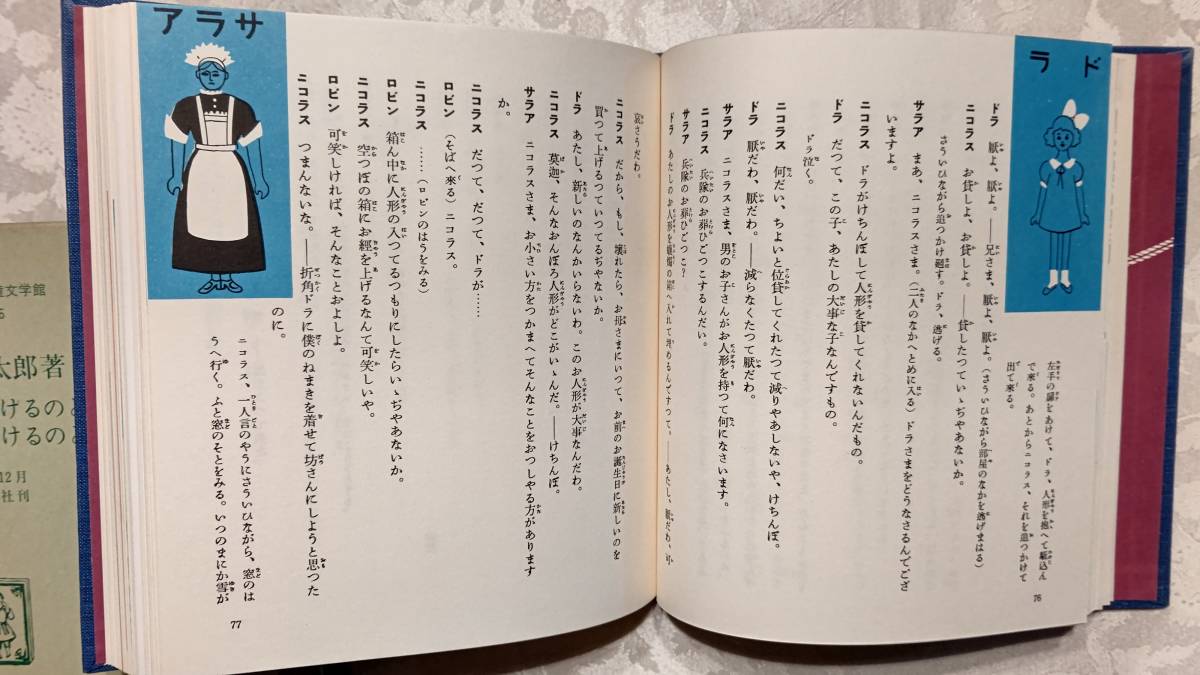 ドラ
左手の扉をあけて、ドラ、人形を抱へて駆込ん
で来る。あとからニコラス、それを追つかけて
出て来る。
ドラ 厭よ、厭よ。――兄さま、厭よ、厭よ。(さういひながら部屋のなかを逃げまはる)
ニコラス お貸しよ、お貸しよ。――貸したつていゝぢやあないか。
さういひながら追つかけ廻す。ドラ、逃げる。
サラア まあ、ニコラスさま。(二人のなかへとめに入る)ドラさまをどうなさるんでござ
いますよ。
ニコラス ドラがけちんぼして人形を貸してくれないんだもの。
ドラ だつて、この子、あたしの大事な子なんですもの。
ドラ泣く。
ニコラス 何だい、ちよいと位貸してくれたつて減りやあしないや、けちんぼ。
ドラ 厭だわ、厭だわ。――減らなくたつて厭だわ。
サラア ニコラスさま、男のお子さんがお人形を持つて何になさいます。
ニコラス 兵隊のお葬ひごつこするんだい。
サラア 兵隊のお葬ひごつこ?
ドラ あたしのお人形を 箱へ入れて埋めるんですつて。――あたし、厭だわ、
76
サラア
哀さうだわ。
ニコラス だから、もし、壊れたら、お母さまにいつて、お前のお誕生日に新しいのを
買つて上げるつていつてるぢやないか。
ドラ あたし、新しいのなんかいらないわ。このお人形が大事なんだわ。
ニコラス 莫迦、そんなおんぼろ人形がどこがいゝんだ。――けちんぼ。
サラア ニコラスさま、お小さい方をつかまへてそんなことをおつしやる方があります
か。
ニコラス だつて、だつて、ドラが……
ロビン (そばへ來る)ニコラス。
ニコラス ……(ロビンのはうをみる)
ロビン 箱ん中に人形の入つてるつもりにしたらいゝぢやあないか。
ニコラス 空つぽの箱にお經を上げるなんて可笑しいや。
ロビン 可笑しければ、そんなことおよしよ。
ニコラス つまんないな。――折角ドラに僕のねまきを着せて坊さんにしようと思つた
のに。
ニコラス、一人言のやうにさういひながら、窓のは
うへ行く。ふと窓のそとをみる。いつのまにか雪が
77
文学館
太郎著
けるの
けるの
12月
社刊